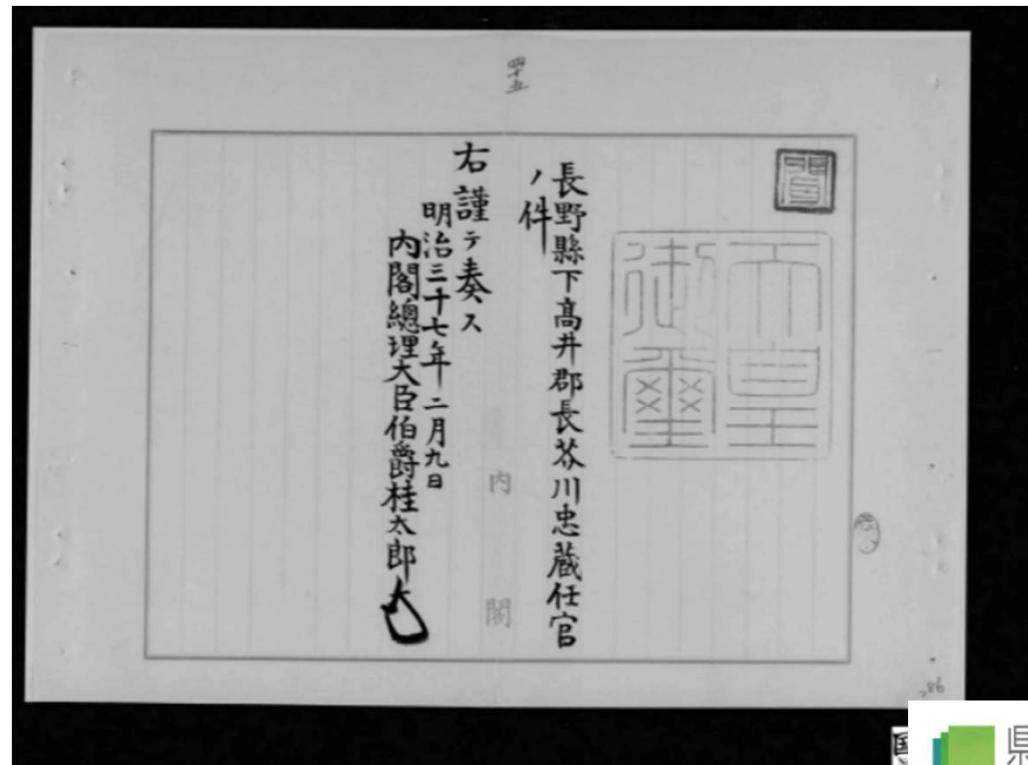 四十五
聞
天皇
御璽
長野縣下高井郡長芥川忠蔵任官
ノ件
右謹テ奏ス
明治三十七年二月九日
内閣總理大臣伯爵桂太郎
内閣
286
国
県